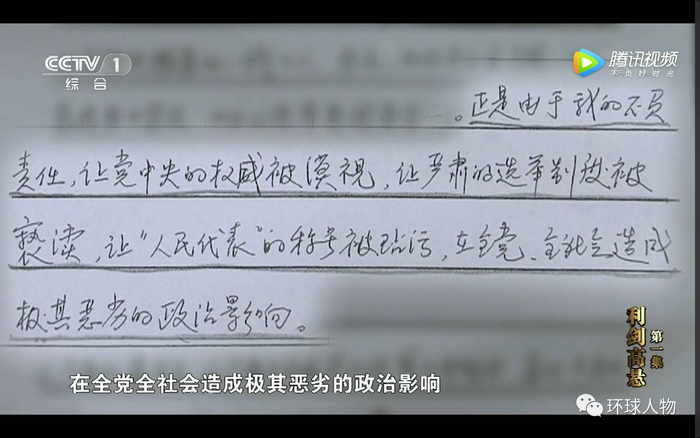 CCTV 1
综合
腾讯视频
不负好时光
。正是由于我的不负
责任，让党中央的权威被漠视，让严肃的选举制度被
亵渎，让“人民代表”的称号被玷污，在全党、全社会造成
极其恶劣的政治影响。
利剑高悬
第一集
在全党全社会造成极其恶劣的政治影响
环球人物